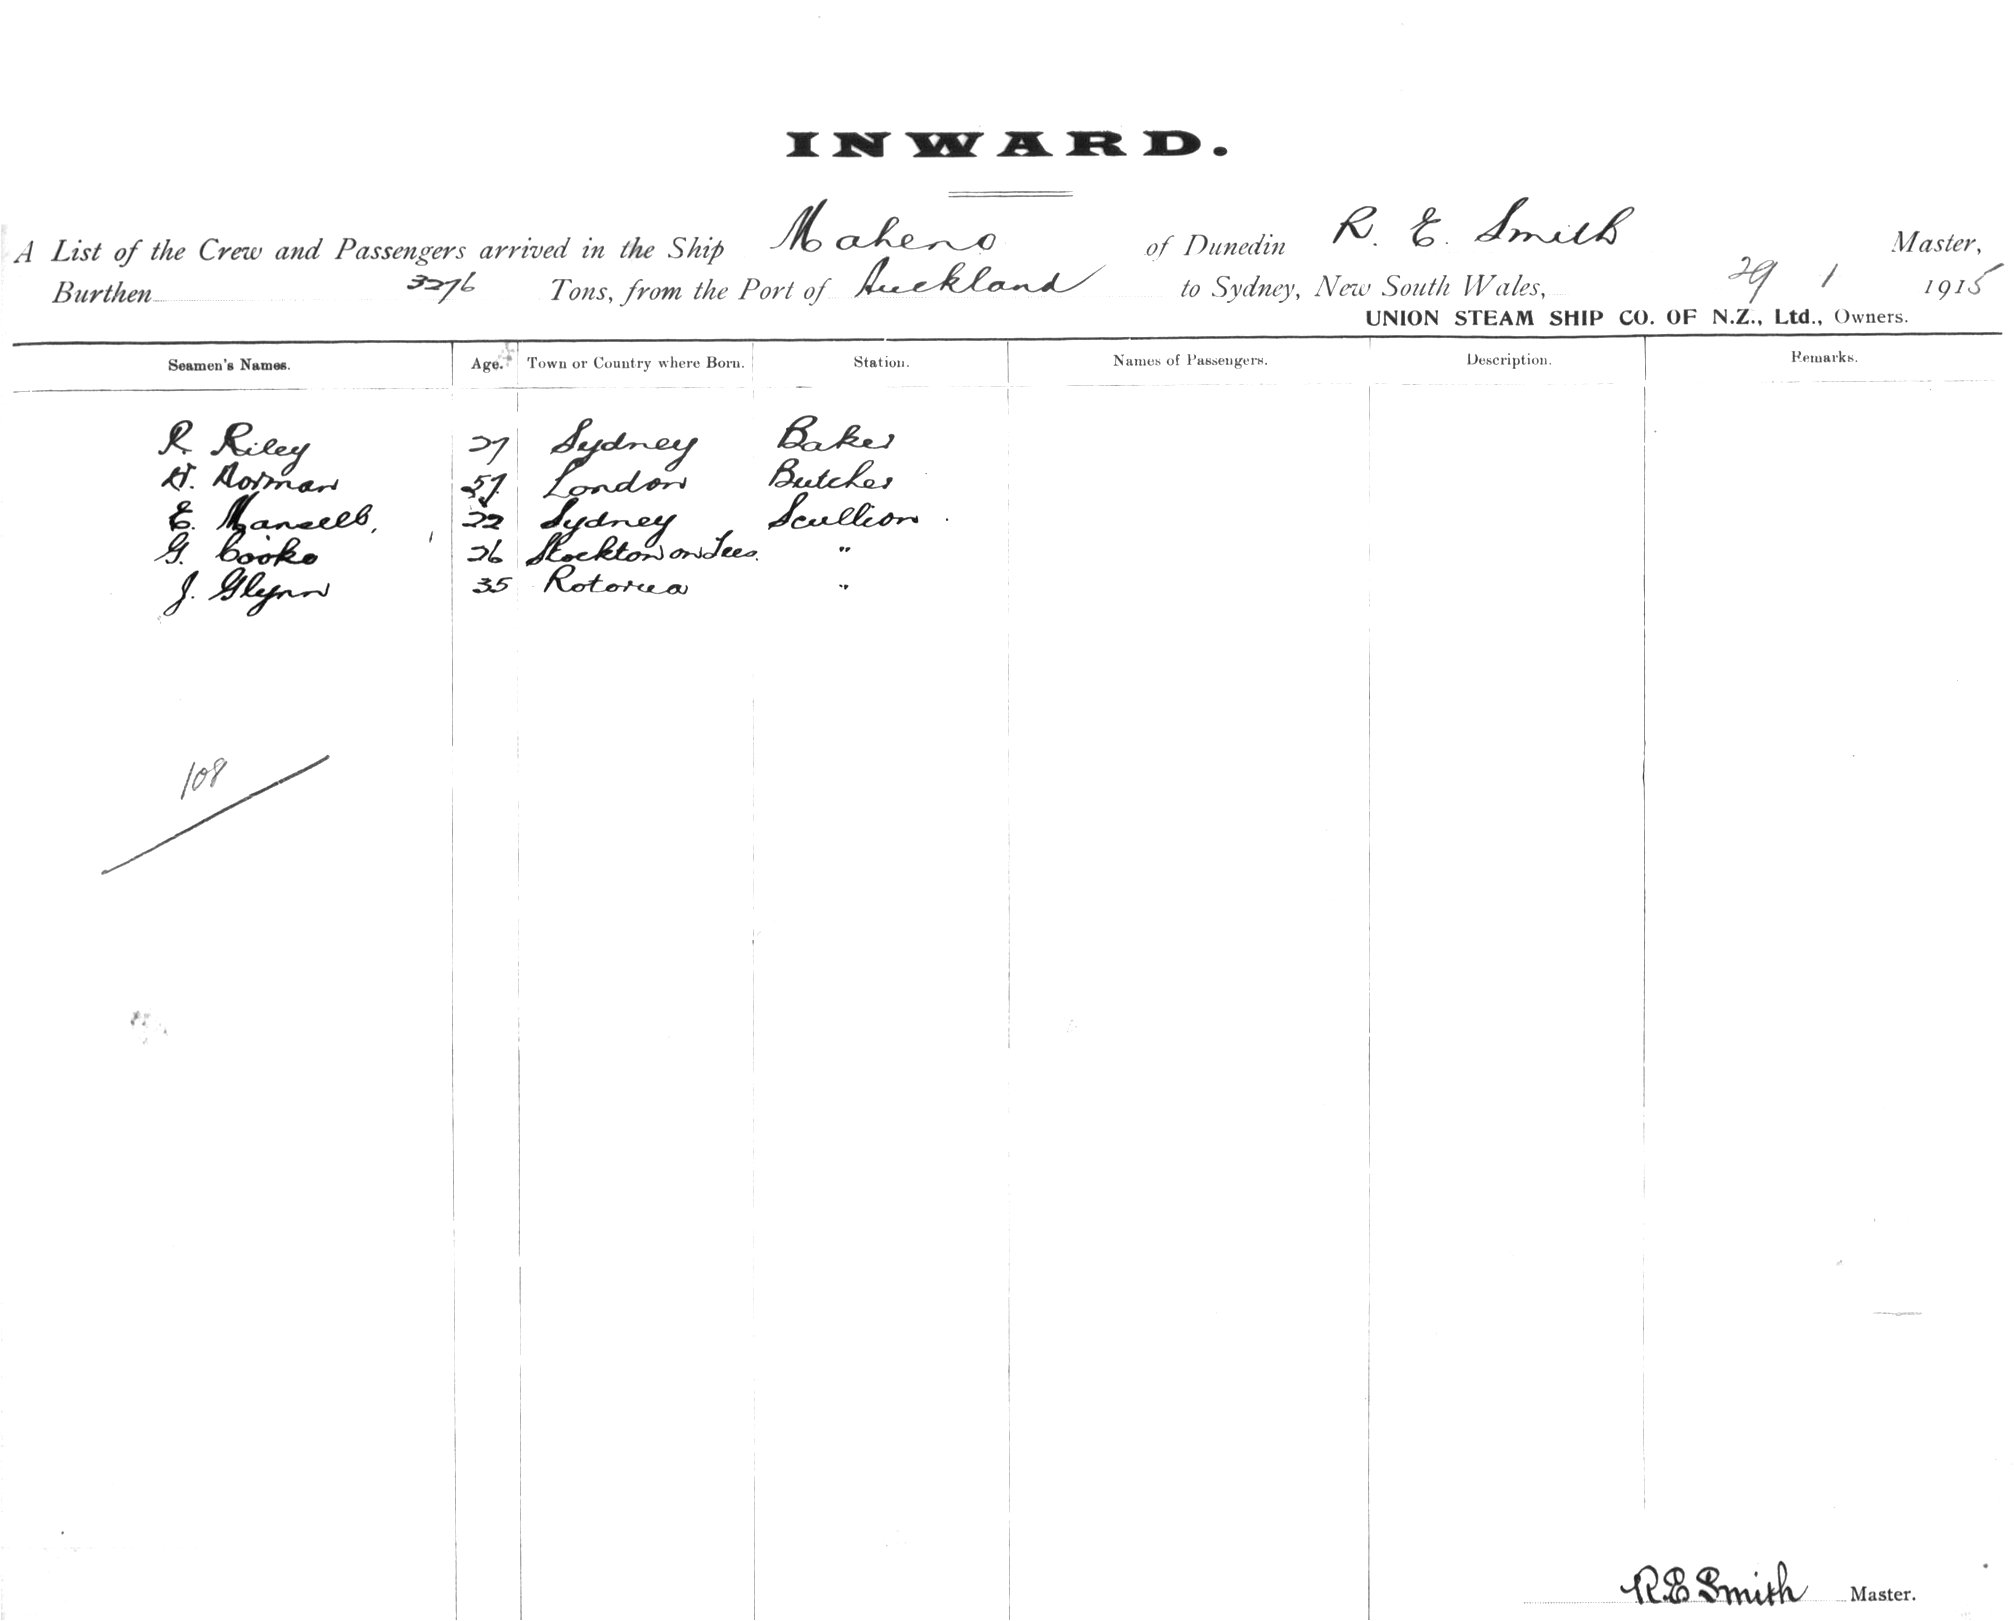 INWARD.
A List of the Crew and Passengers arrived in the Ship Maheno of Dunedin R. E. Smith Master,
Burthen 3276 Tons, from the Port of Auckland to Sydney, New South Wales, 29 1 1915
UNION STEAM SHIP CO. OF N.Z., Ltd., Owners.
Seamen's Names. Age. Town or Country where Born. Station. Names of Passengers. Description. Remarks.
R. Riley 27 Sydney Baker
H. Norman 57 London Butcher
E. Mansell, 22 Sydney Scullion
G. Cooke 26 Stockton on Tees. "
J. Glynn 35 Rotorua "
108
R E Smith Master.